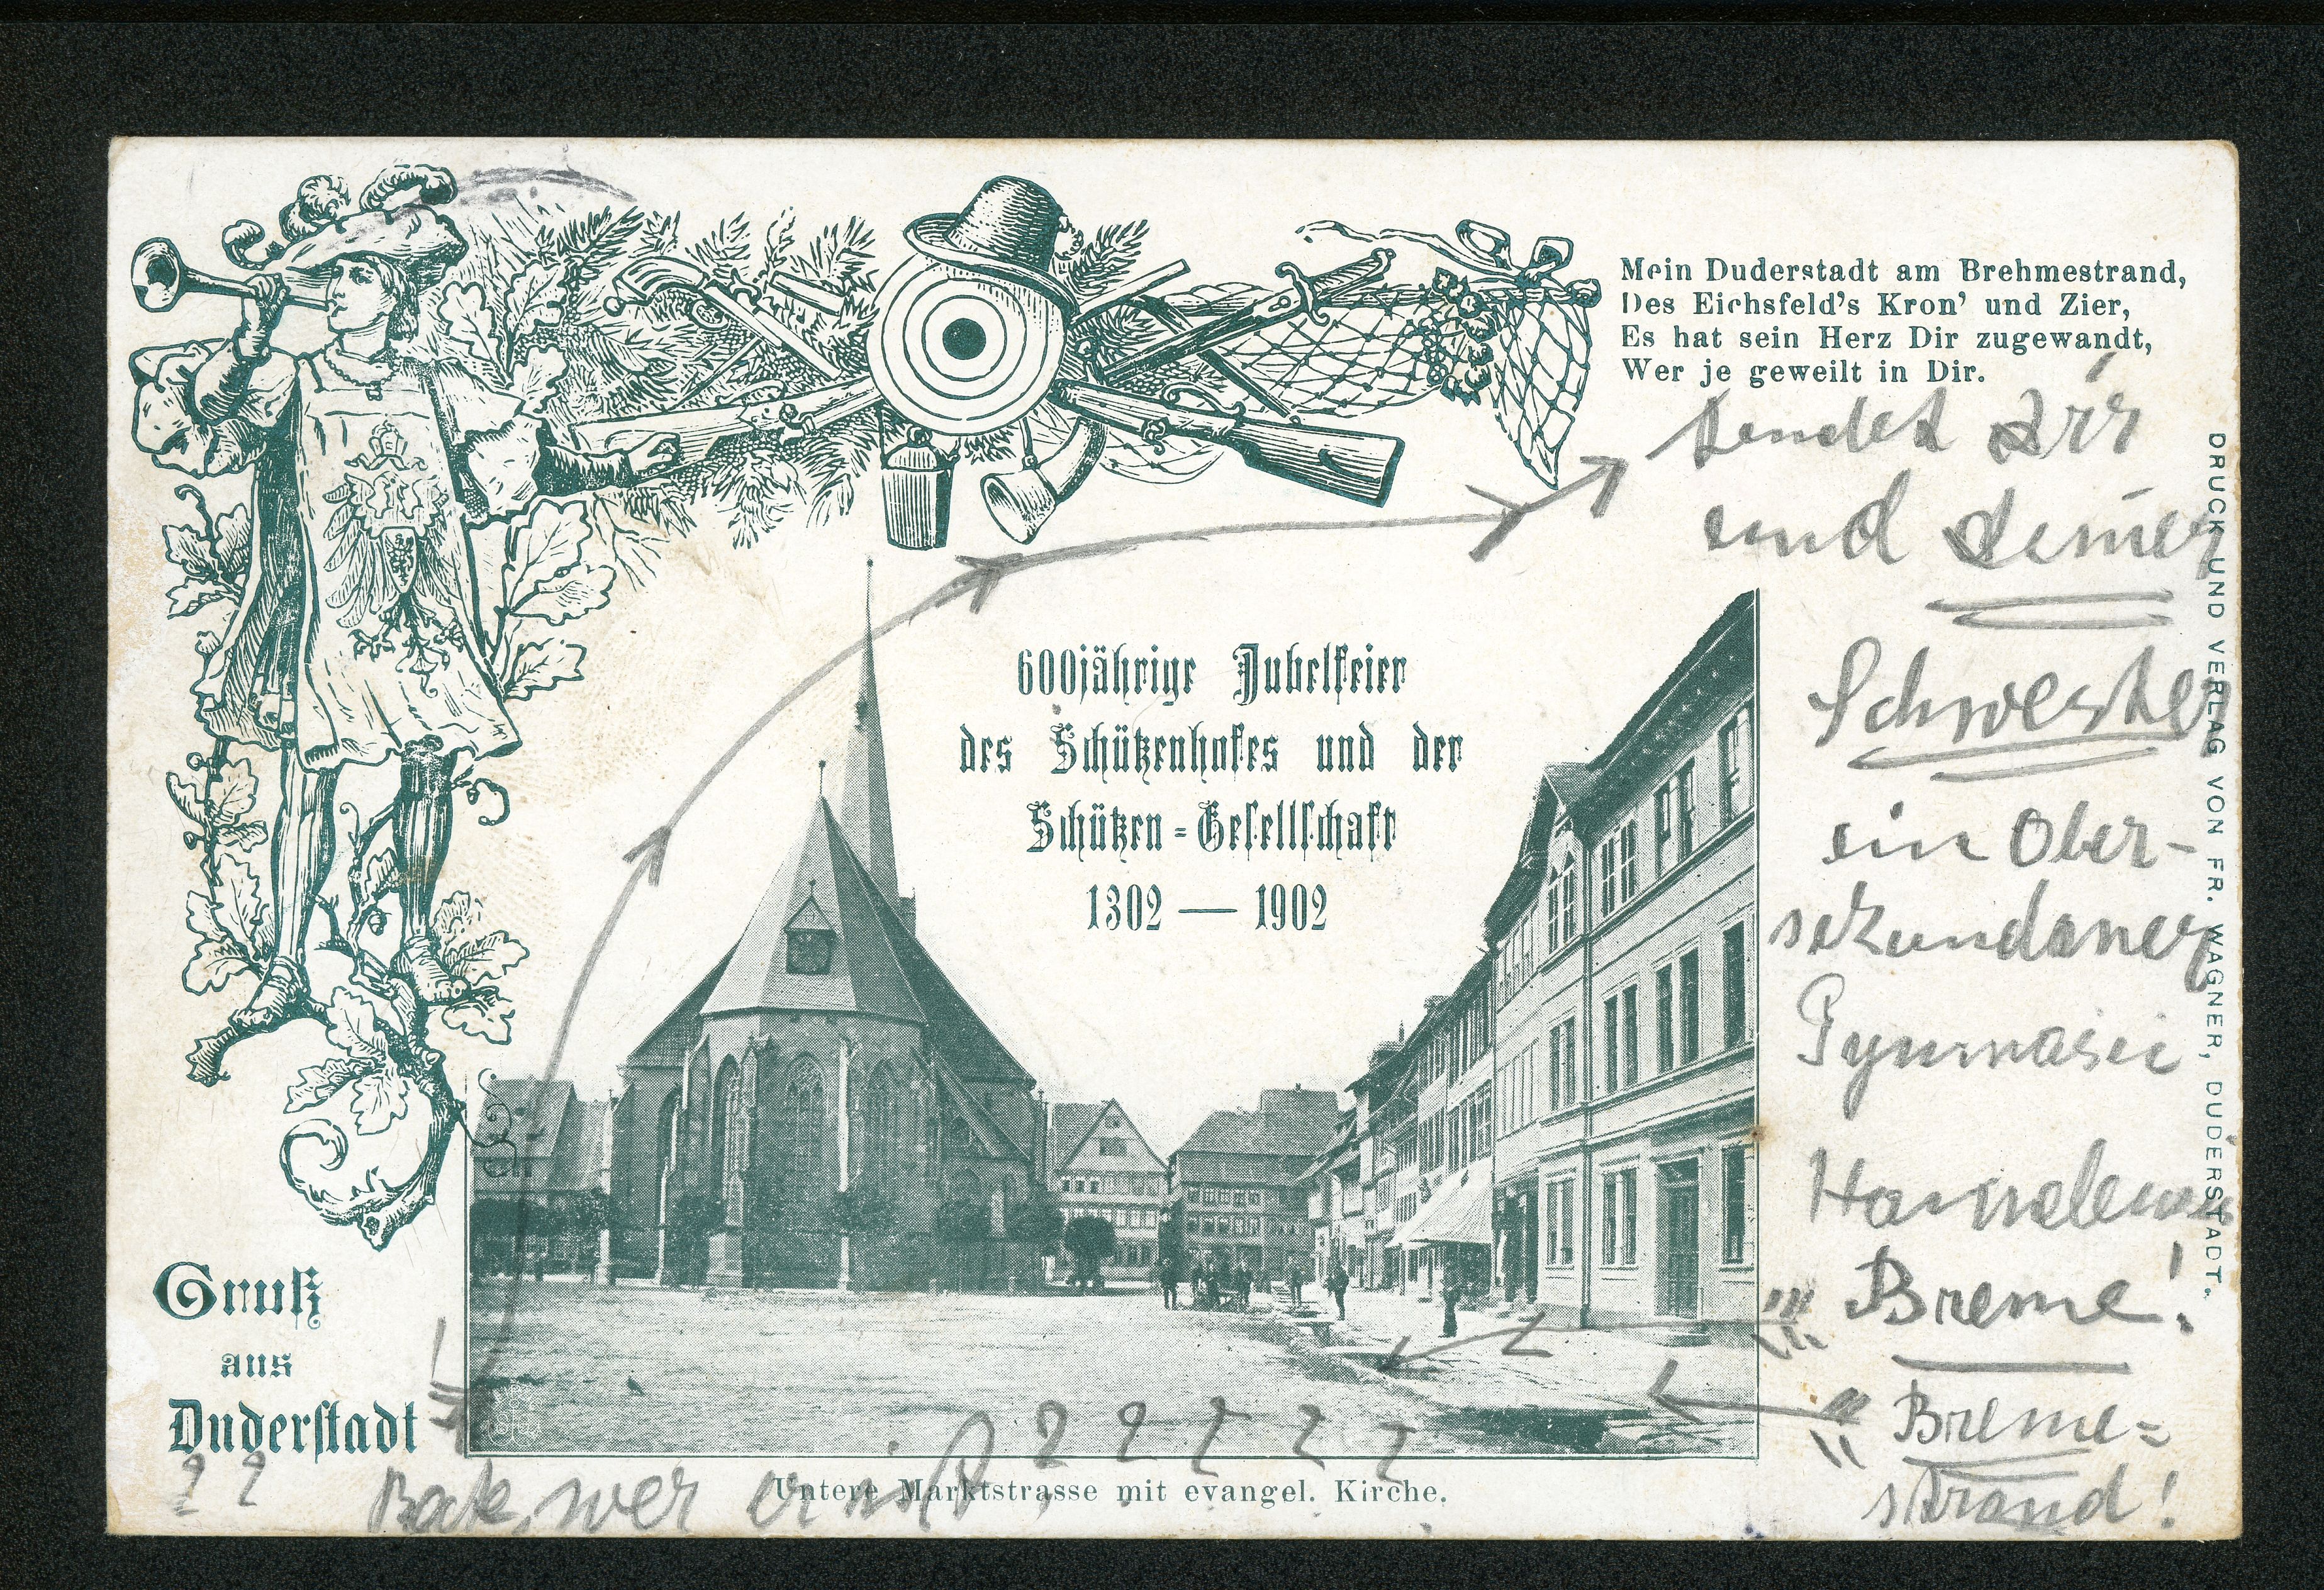 Mein Duderstadt am Brehmestrand,
Des Eichsfeld's Kron' und Zier,
Es hat sein Herz Dir zugewandt,
Wer je geweilt in Dir.
sendet Dir
und deiner
Schwester
ein Ober-
sekundaner
Gymnasii
Breme!
Breme=
strand!
600jährige Jubelfeier
des Schützenhofes und der
Schützen=Gesellschaft
1302 — 1902
Gruß
aus
Duderstadt
? ? wer ? ? ? ? ?
Untere Marktstrasse mit evangel. Kirche.
DRUCK UND VERLAG VON FR. WAGNER, DUDERSTADT.